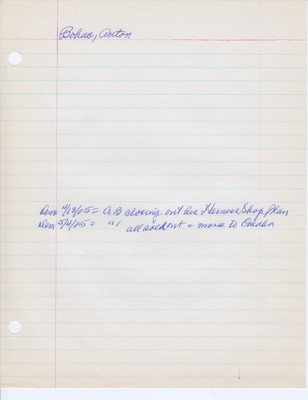 Bohac, Anton
Dem 4/13/05 = AB closing out his Harness Shop, plan
Dem 5/4/05 = " " all sold out & move to Omaha